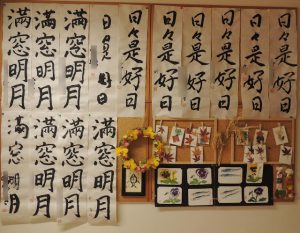 満窓明月
満窓明月
満窓明月
日々是好日
日々是好日
日々是好日
日々是好日
日々是好日
日々是好日
日々是好日
満窓明月
満窓明月
満窓明月
満窓明月